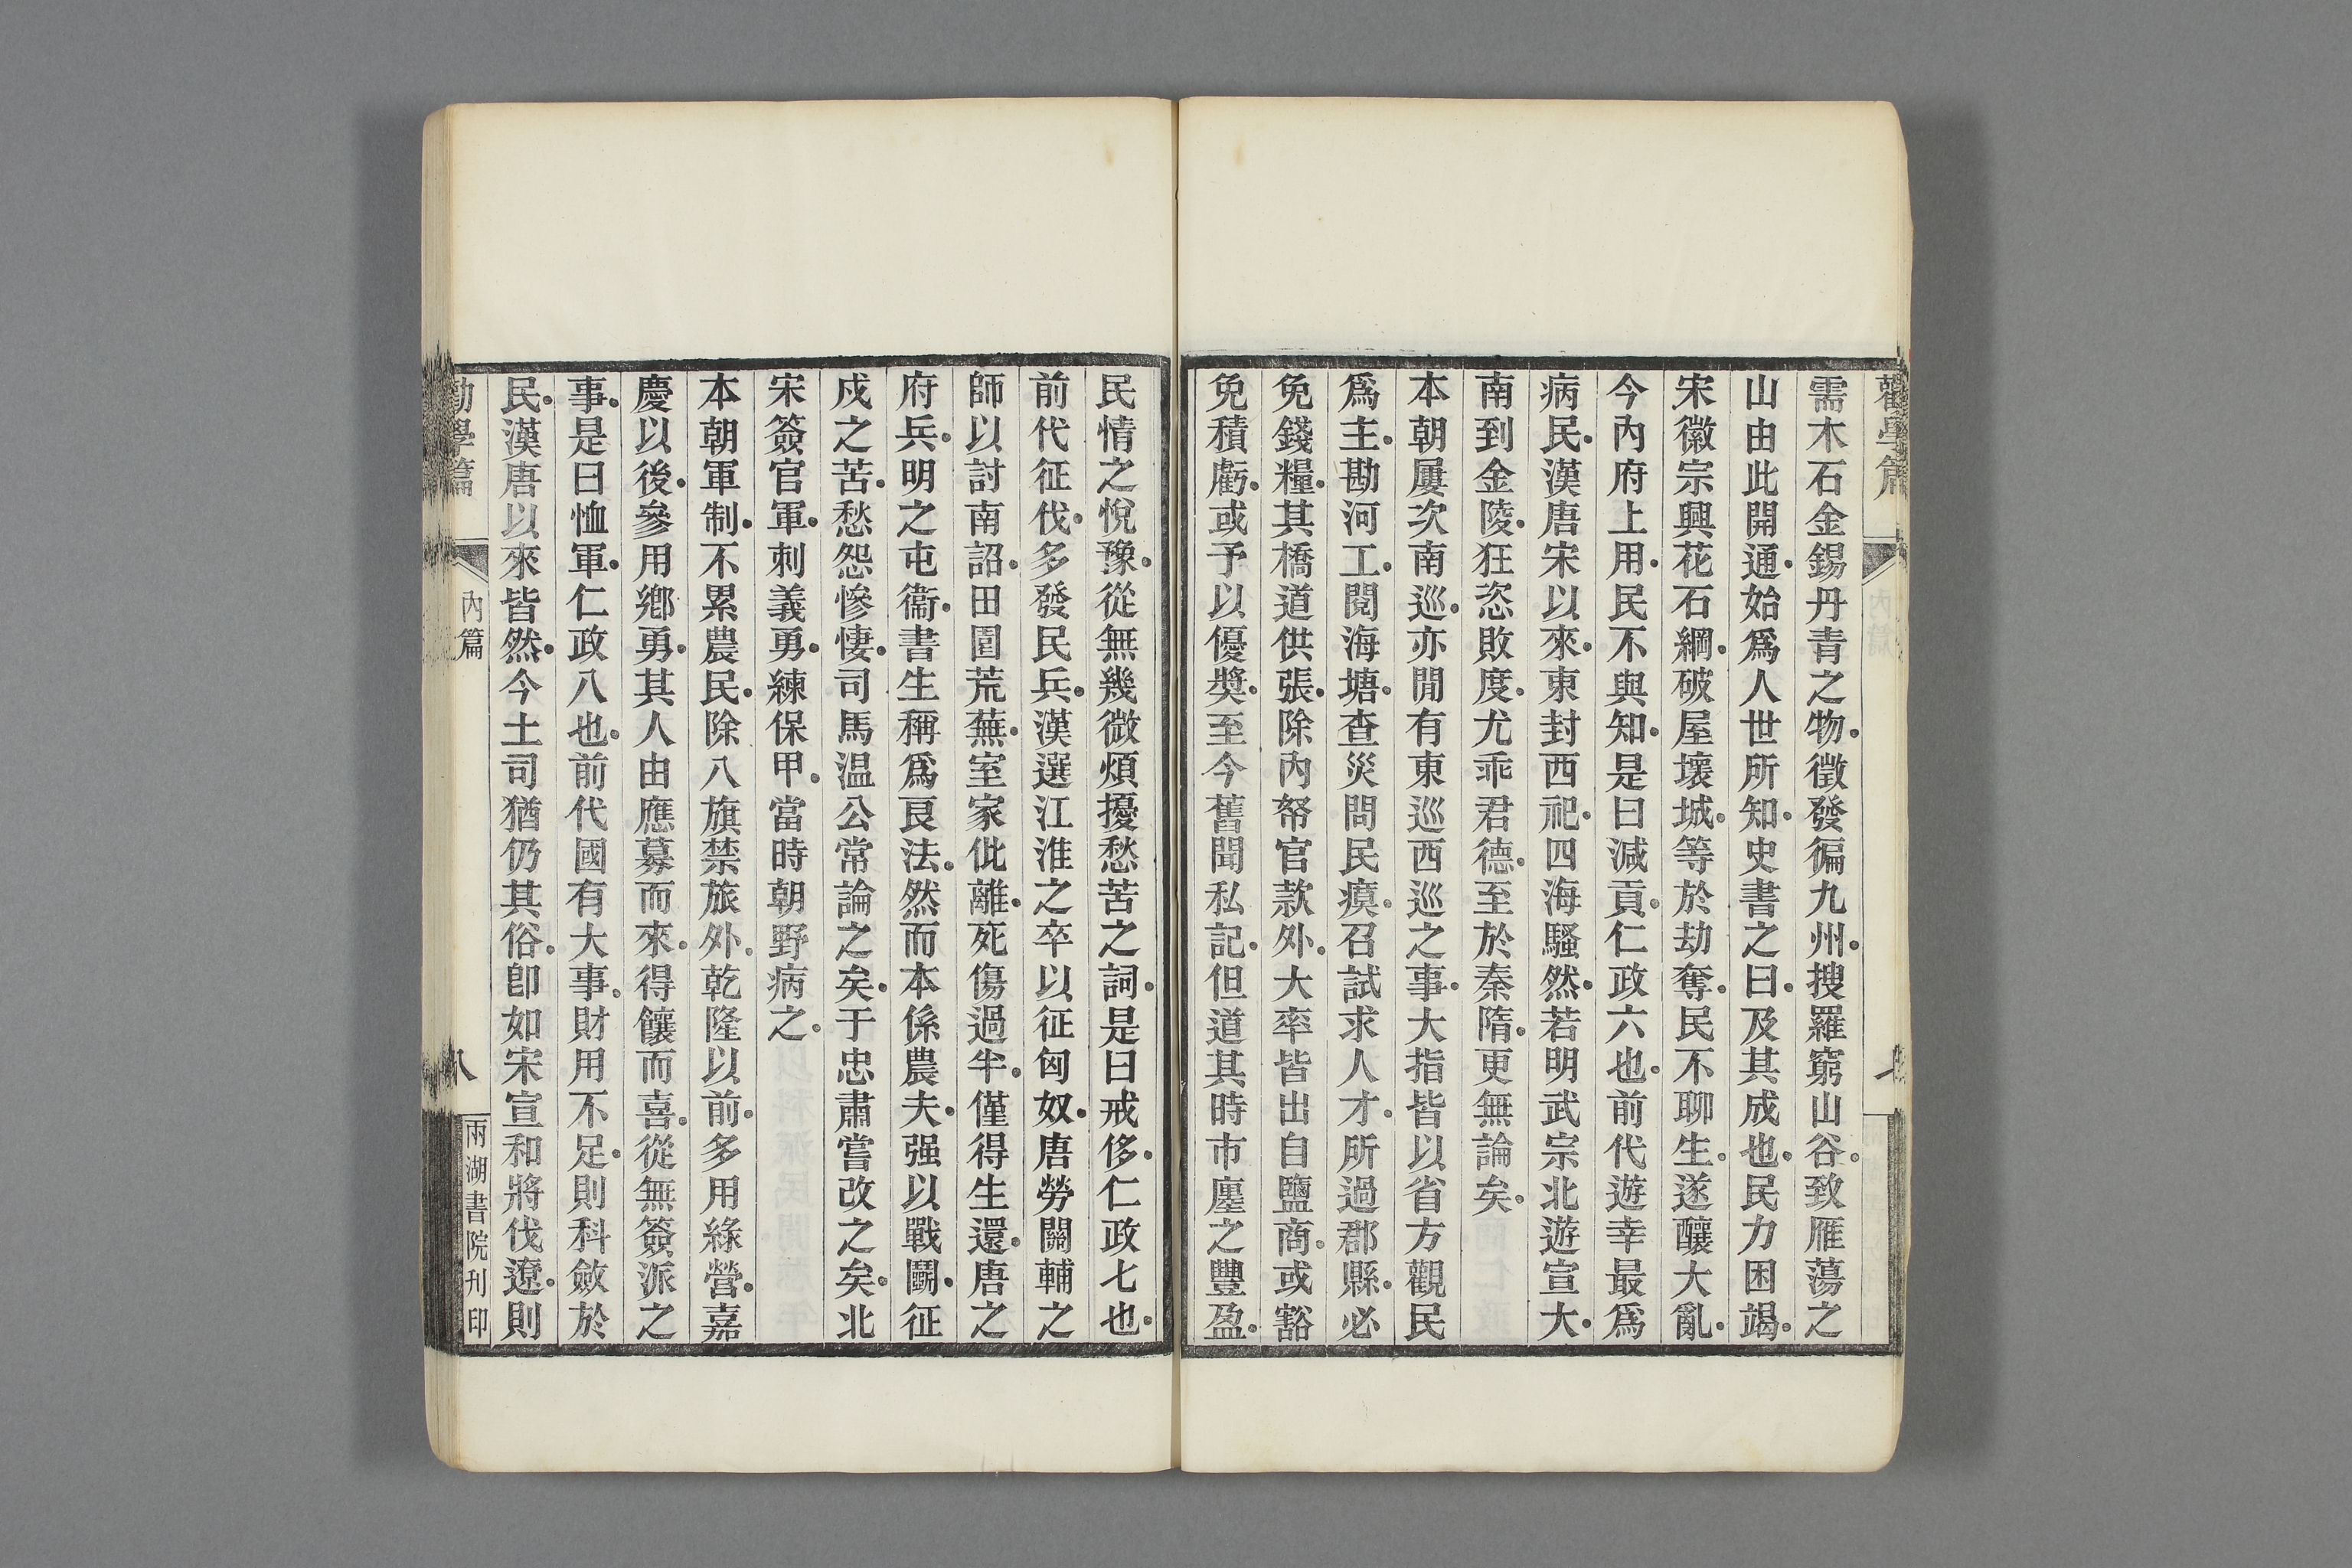 勸學篇
內篇
七
需木石金錫丹青之物。徵發徧九州。搜羅窮山谷。致雁蕩之
山由此開通。始爲人世所知。史書之曰。及其成也。民力困竭。
宋徽宗興花石綱。破屋壞城。等於劫奪。民不聊生。遂釀大亂。
今內府上用。民不與知。是曰減貢。仁政六也。前代遊幸最爲
病民。漢唐宋以來。東封西祀。四海騷然。若明武宗北遊宣大。
南到金陵。狂恣敗度。尤乖君德。至於秦隋。更無論矣。
本朝屢次南巡。亦閒有東巡西巡之事。大指皆以省方觀民
爲主。勘河工。閱海塘。查災問民瘼。召試求人才。所過郡縣。必
免錢糧。其橋道供張。除內帑官款外。大率皆出自鹽商。或豁
免積虧。或予以優獎。至今舊聞私記。但道其時市廛之豐盈。
民情之悅豫。從無幾微煩擾愁苦之詞。是曰戒侈。仁政七也。
前代征伐。多發民兵。漢選江淮之卒以征匈奴。唐勞關輔之
師以討南詔。田園荒蕪。室家仳離。死傷過半。僅得生還。唐之
府兵。明之屯衞。書生稱爲良法。然而本係農夫。强以戰鬭。征
戍之苦。愁怨慘悽。司馬温公常論之矣。于忠肅嘗改之矣。北
宋簽官軍。刺義勇。練保甲。當時朝野病之。
本朝軍制。不累農民。除八旗禁旅外。乾隆以前。多用綠營。嘉
慶以後。參用鄉勇。其人由應募而來。得饟而喜。從無簽派之
事。是曰恤軍。仁政八也。前代國有大事。財用不足。則科斂於
民。漢唐以來皆然。今土司猶仍其俗。卽如宋宣和將伐遼。則
勸學篇
內篇
八
兩湖書院刊印